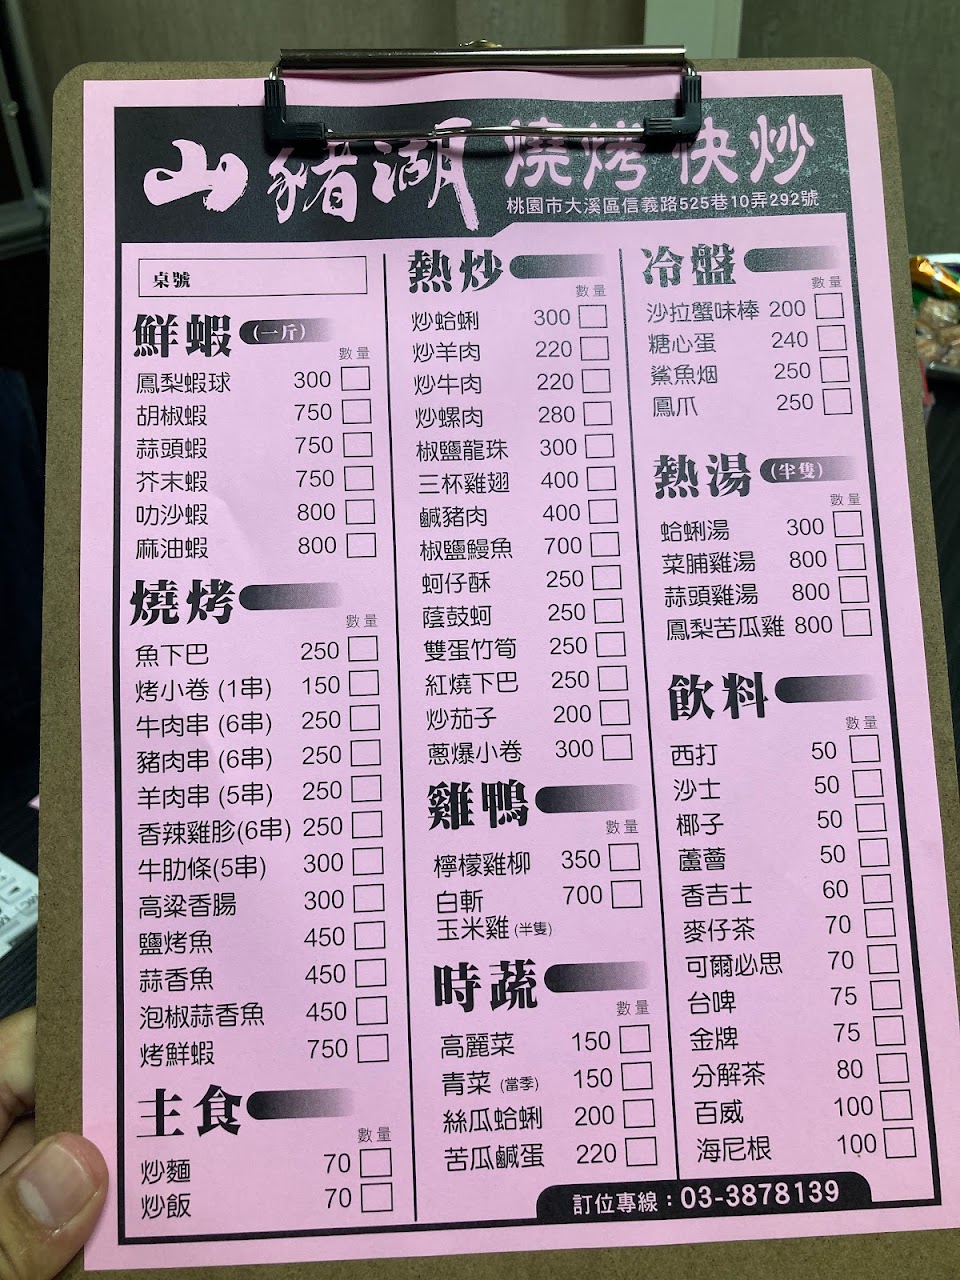 山豬湖 燒烤 快炒
桃園市大溪區信義路525巷10弄292號
桌號
鮮蝦 (一斤)
數量
鳳梨蝦球 300
胡椒蝦 750
蒜頭蝦 750
芥末蝦 750
叻沙蝦 800
麻油蝦 800
燒烤
數量
魚下巴 250
烤小卷 (1串) 150
牛肉串 (6串) 250
豬肉串 (6串) 250
羊肉串 (5串) 250
香辣雞胗(6串) 250
牛肋條(5串) 300
高粱香腸 300
鹽烤魚 450
蒜香魚 450
泡椒蒜香魚 450
烤鮮蝦 750
主食
數量
炒麵 70
炒飯 70
熱炒
數量
炒蛤蜊 300
炒羊肉 220
炒牛肉 220
炒螺肉 280
椒鹽龍珠 300
三杯雞翅 400
鹹豬肉 400
椒鹽鰻魚 700
蚵仔酥 250
蔭鼓蚵 250
雙蛋竹筍 250
紅燒下巴 250
炒茄子 200
蔥爆小卷 300
雞鴨
數量
檸檬雞柳 350
白斬 700
玉米雞 (半隻)
時蔬
數量
高麗菜 150
青菜 (當季) 150
絲瓜蛤蜊 200
苦瓜鹹蛋 220
冷盤
數量
沙拉蟹味棒 200
糖心蛋 240
鯊魚烟 250
鳳爪 250
熱湯 (半隻)
數量
蛤蜊湯 300
菜脯雞湯 800
蒜頭雞湯 800
鳳梨苦瓜雞 800
飲料
數量
西打 50
沙士 50
椰子 50
蘆薈 50
香吉士 60
麥仔茶 70
可爾必思 70
台啤 75
金牌 75
分解茶 80
百威 100
海尼根 100
訂位專線：03-3878139